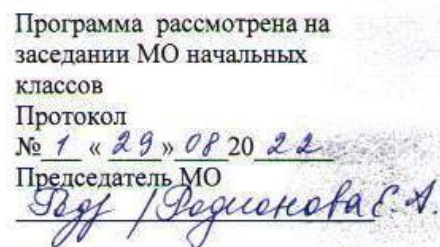 Программа рассмотрена на
заседании МО начальных
классов
Протокол
№ 1 « 29 » 08 20 22
Председатель МО
/ Родионова Е. А.